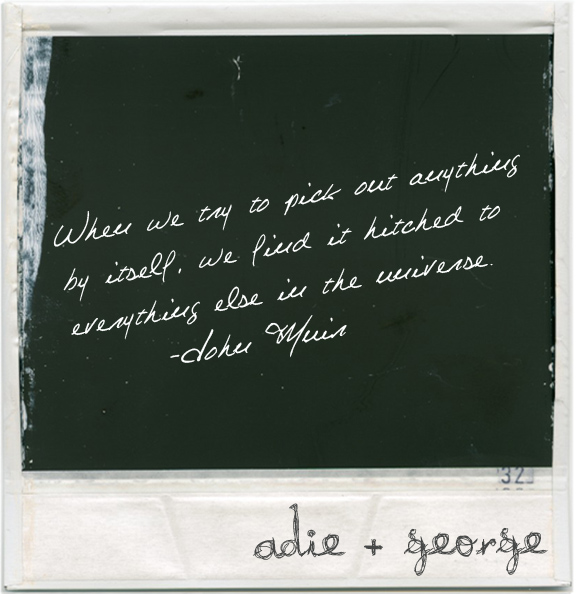 When we try to pick out anything
by itself, we find it hitched to
everything else in the universe.
-John Muir
32
adie + george